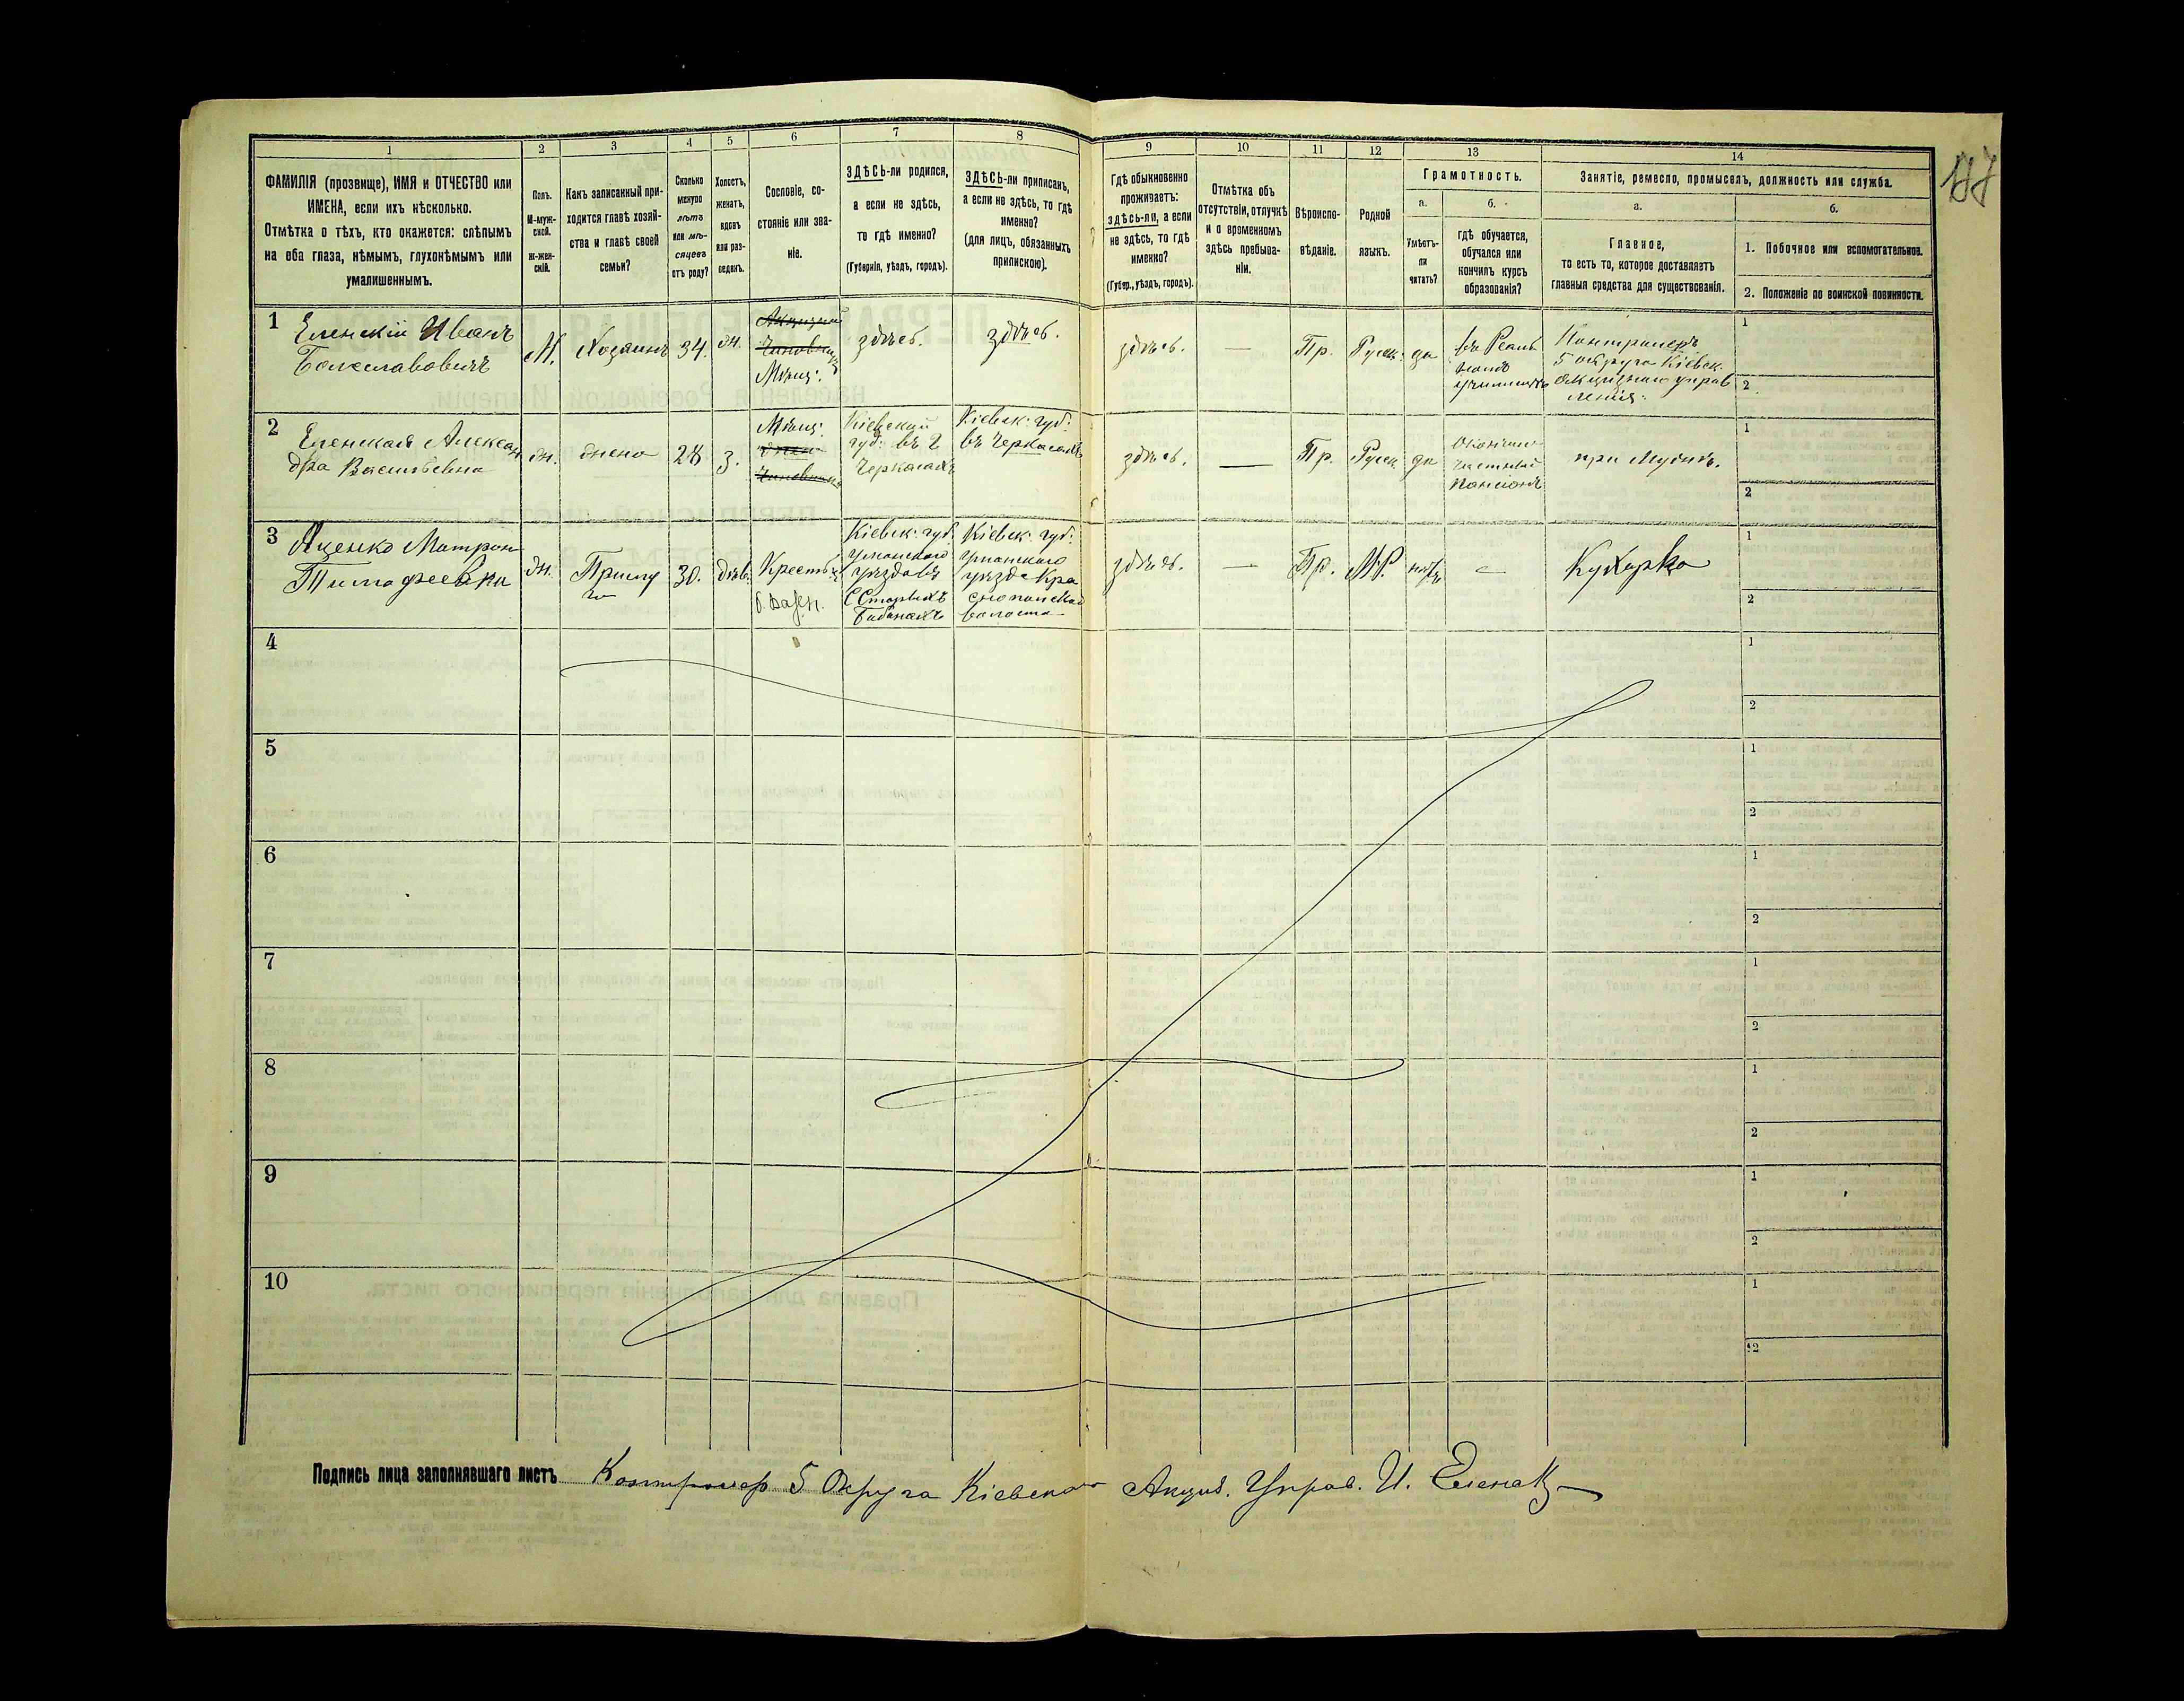 1 2 3 4 5 6 7 8 9 10 11 12 13 14
ФАМИЛІЯ (прозвище), ИМЯ и ОТЧЕСТВО или
ИМЕНА, если ихъ нѣсколько.
Отмѣтка о тѣхъ, кто окажется: слѣпымъ
на оба глаза, нѣмымъ, глухонѣмымъ или
умалишеннымъ.
Полъ.
М-муж-
ской.
Ж-жен-
скій.
Какъ записанный при-
ходится главѣ хозяй-
ства и главѣ своей
семьи?
Сколько
минуло
лѣтъ
или мѣ-
сяцевъ
отъ роду?
Холостъ,
женатъ,
вдовъ
или раз-
веденъ.
Сословіе, со-
стояніе или зва-
ніе.
ЗДѢСЬ-ли родился,
а если не здѣсь,
то гдѣ именно?
(Губернія, уѣздъ, городъ).
ЗДѢСЬ-ли приписанъ,
а если не здѣсь, то гдѣ
именно?
(для лицъ, обязанныхъ
припискою).
Гдѣ обыкновенно
проживаетъ:
здѣсь-ли, а если
не здѣсь, то гдѣ
именно?
(Губер., уѣздъ, городъ).
Отмѣтка объ
отсутствіи, отлучкѣ
и о временномъ
здѣсь пребыва-
ніи.
Вѣроиспо-
вѣданіе.
Родной
языкъ.
Грамотность.
а.
Умѣетъ-
ли
читать?
б.
гдѣ обучается,
обучался или
кончилъ курсъ
образованія?
Занятіе, ремесло, промыселъ, должность или служба.
а.
Главное,
то есть то, которое доставляетъ
главныя средства для существованія.
б.
1. Побочное или вспомогательное.
2. Положеніе по воинской повинности.
1
Еленскій Иванъ
Болеславовичъ
М.
Хозяинъ
34.
Мѣщ:
здѣсь.
здѣсь.
здѣсь.
—
Пр.
Русск:
да
въ Реаль
номъ
училищѣ
Контролеръ
5 округа Кіевск.
акцизнаго управ
ленія:
1
2
2
Еленская Алексан
дра Васильевна
ж.
жена
28
з.
Мѣщ:
Кіевской
губ: въ г
Черкасахъ
Кіевск: губ:
въ Черкасахъ
здѣсь.
—
Пр.
Русск
да
частный
пансіонъ
при Мужѣ.
1
2
3
Яценко Матрон
Тимофеевна
ж.
30.
дѣв.
Кіевск: губ.
Уманскаго
уѣзда въ
С Старыхъ
Бабанахъ
Кіевск: губ:
Уманскаго
уѣзда Кра
снопольской
волости
здѣсь.
—
Пр.
М.Р.
нѣтъ
—
Кухарка
1
2
4
1
2
5
1
2
6
1
2
7
1
2
8
1
2
9
1
2
10
1
2
Подпись лица заполнявшаго листъ Контролер 5 Округа Кіевскаго Акциз. Управ. И. Еленск